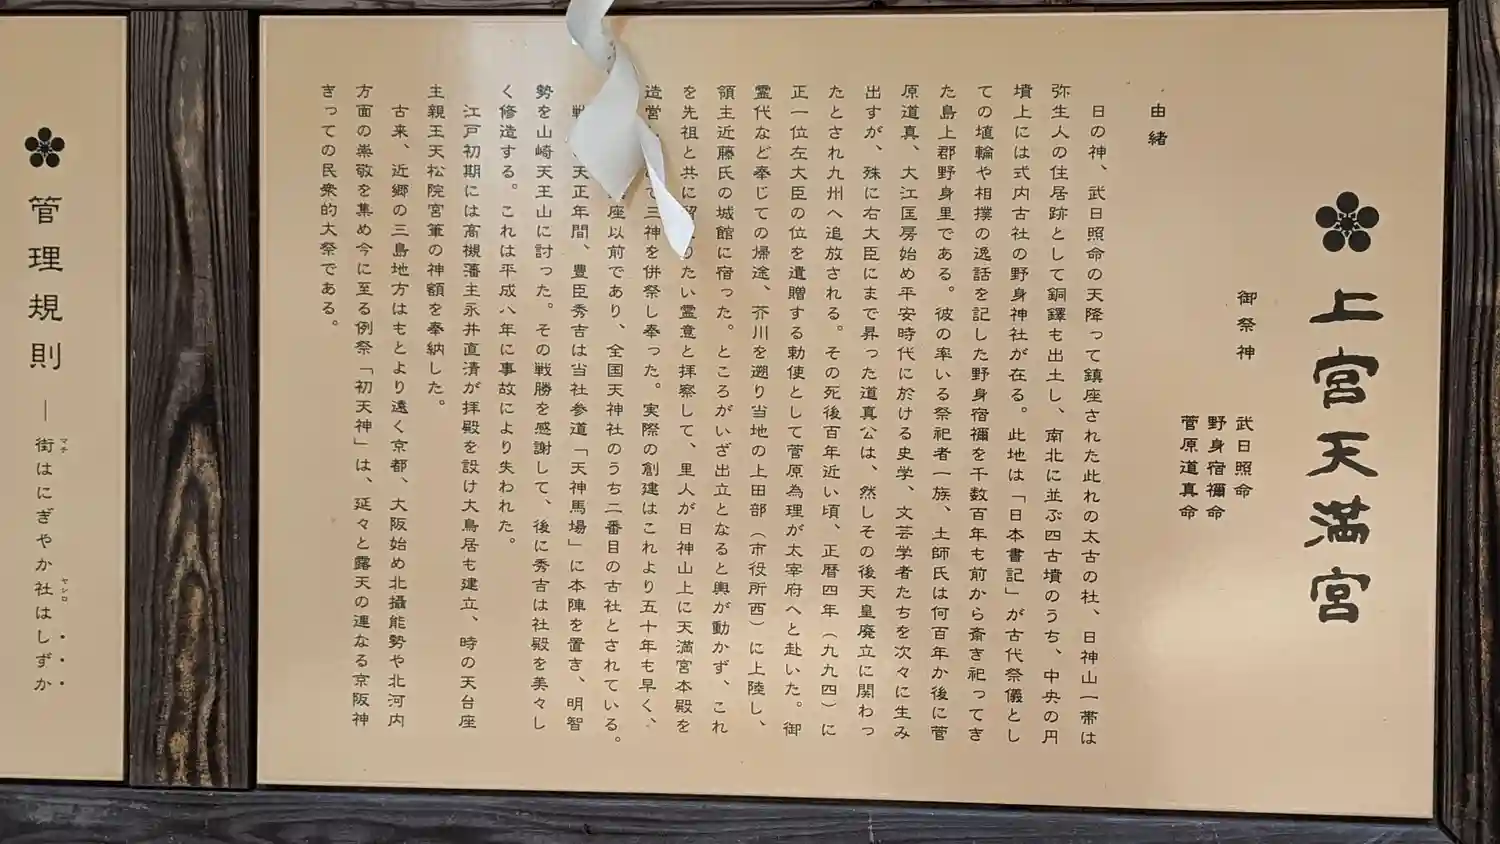 上宮天満宮
御祭神
武日照命
野身宿禰命
菅原道真命
由緒
日の神、武日照命の天降って鎮座された此れの太古の社、日神山一帯は
弥生人の住居跡として銅鐸も出土し、南北に並ぶ四古墳のうち、中央の円
墳上には式内古社の野身神社が在る。此地は「日本書記」が古代祭儀とし
ての埴輪や相撲の逸話を記した野身宿禰を千数百年も前から斎き祀ってき
た島上郡野身里である。彼の率いる祭祀者一族、土師氏は何百年か後に菅
原道真、大江匡房始め平安時代に於ける史学、文芸学者たちを次々に生み
出すが、殊に右大臣にまで昇った道真公は、然しその後天皇廃立に関わっ
たとされ九州へ追放される。その死後百年近い頃、正暦四年(九九四)に
正一位左大臣の位を遺贈する勅使として菅原為理が太宰府へと赴いた。御
霊代など奉じての帰途、芥川を遡り当地の上田部(市役所西)に上陸し、
領主近藤氏の城館に宿った。ところがいざ出立となると輿が動かず、これ
を先祖と共に りたい霊意と拝察して、里人が日神山上に天満宮本殿を
造営 て三神を併祭し奉った。実際の創建はこれより五十年も早く、
座以前であり、全国天神社のうち二番目の古社とされている。
天正年間、豊臣秀吉は当社参道「天神馬場」に本陣を置き、明智
勢を山崎天王山に討った。その戦勝を感謝して、後に秀吉は社殿を美々し
く修造する。これは平成八年に事故により失われた。
江戸初期には高槻藩主永井直清が拝殿を設け大鳥居も建立、時の天台座
主親王天松院宮筆の神額を奉納した。
古来、近郷の三島地方はもとより遠く京都、大阪始め北攝能勢や北河内
方面の崇敬を集め今に至る例祭「初天神」は、延々と露天の連なる京阪神
きっての民衆的大祭である。
管理規則 ― 街はにぎやか社はしずか
マチ
ヤシロ